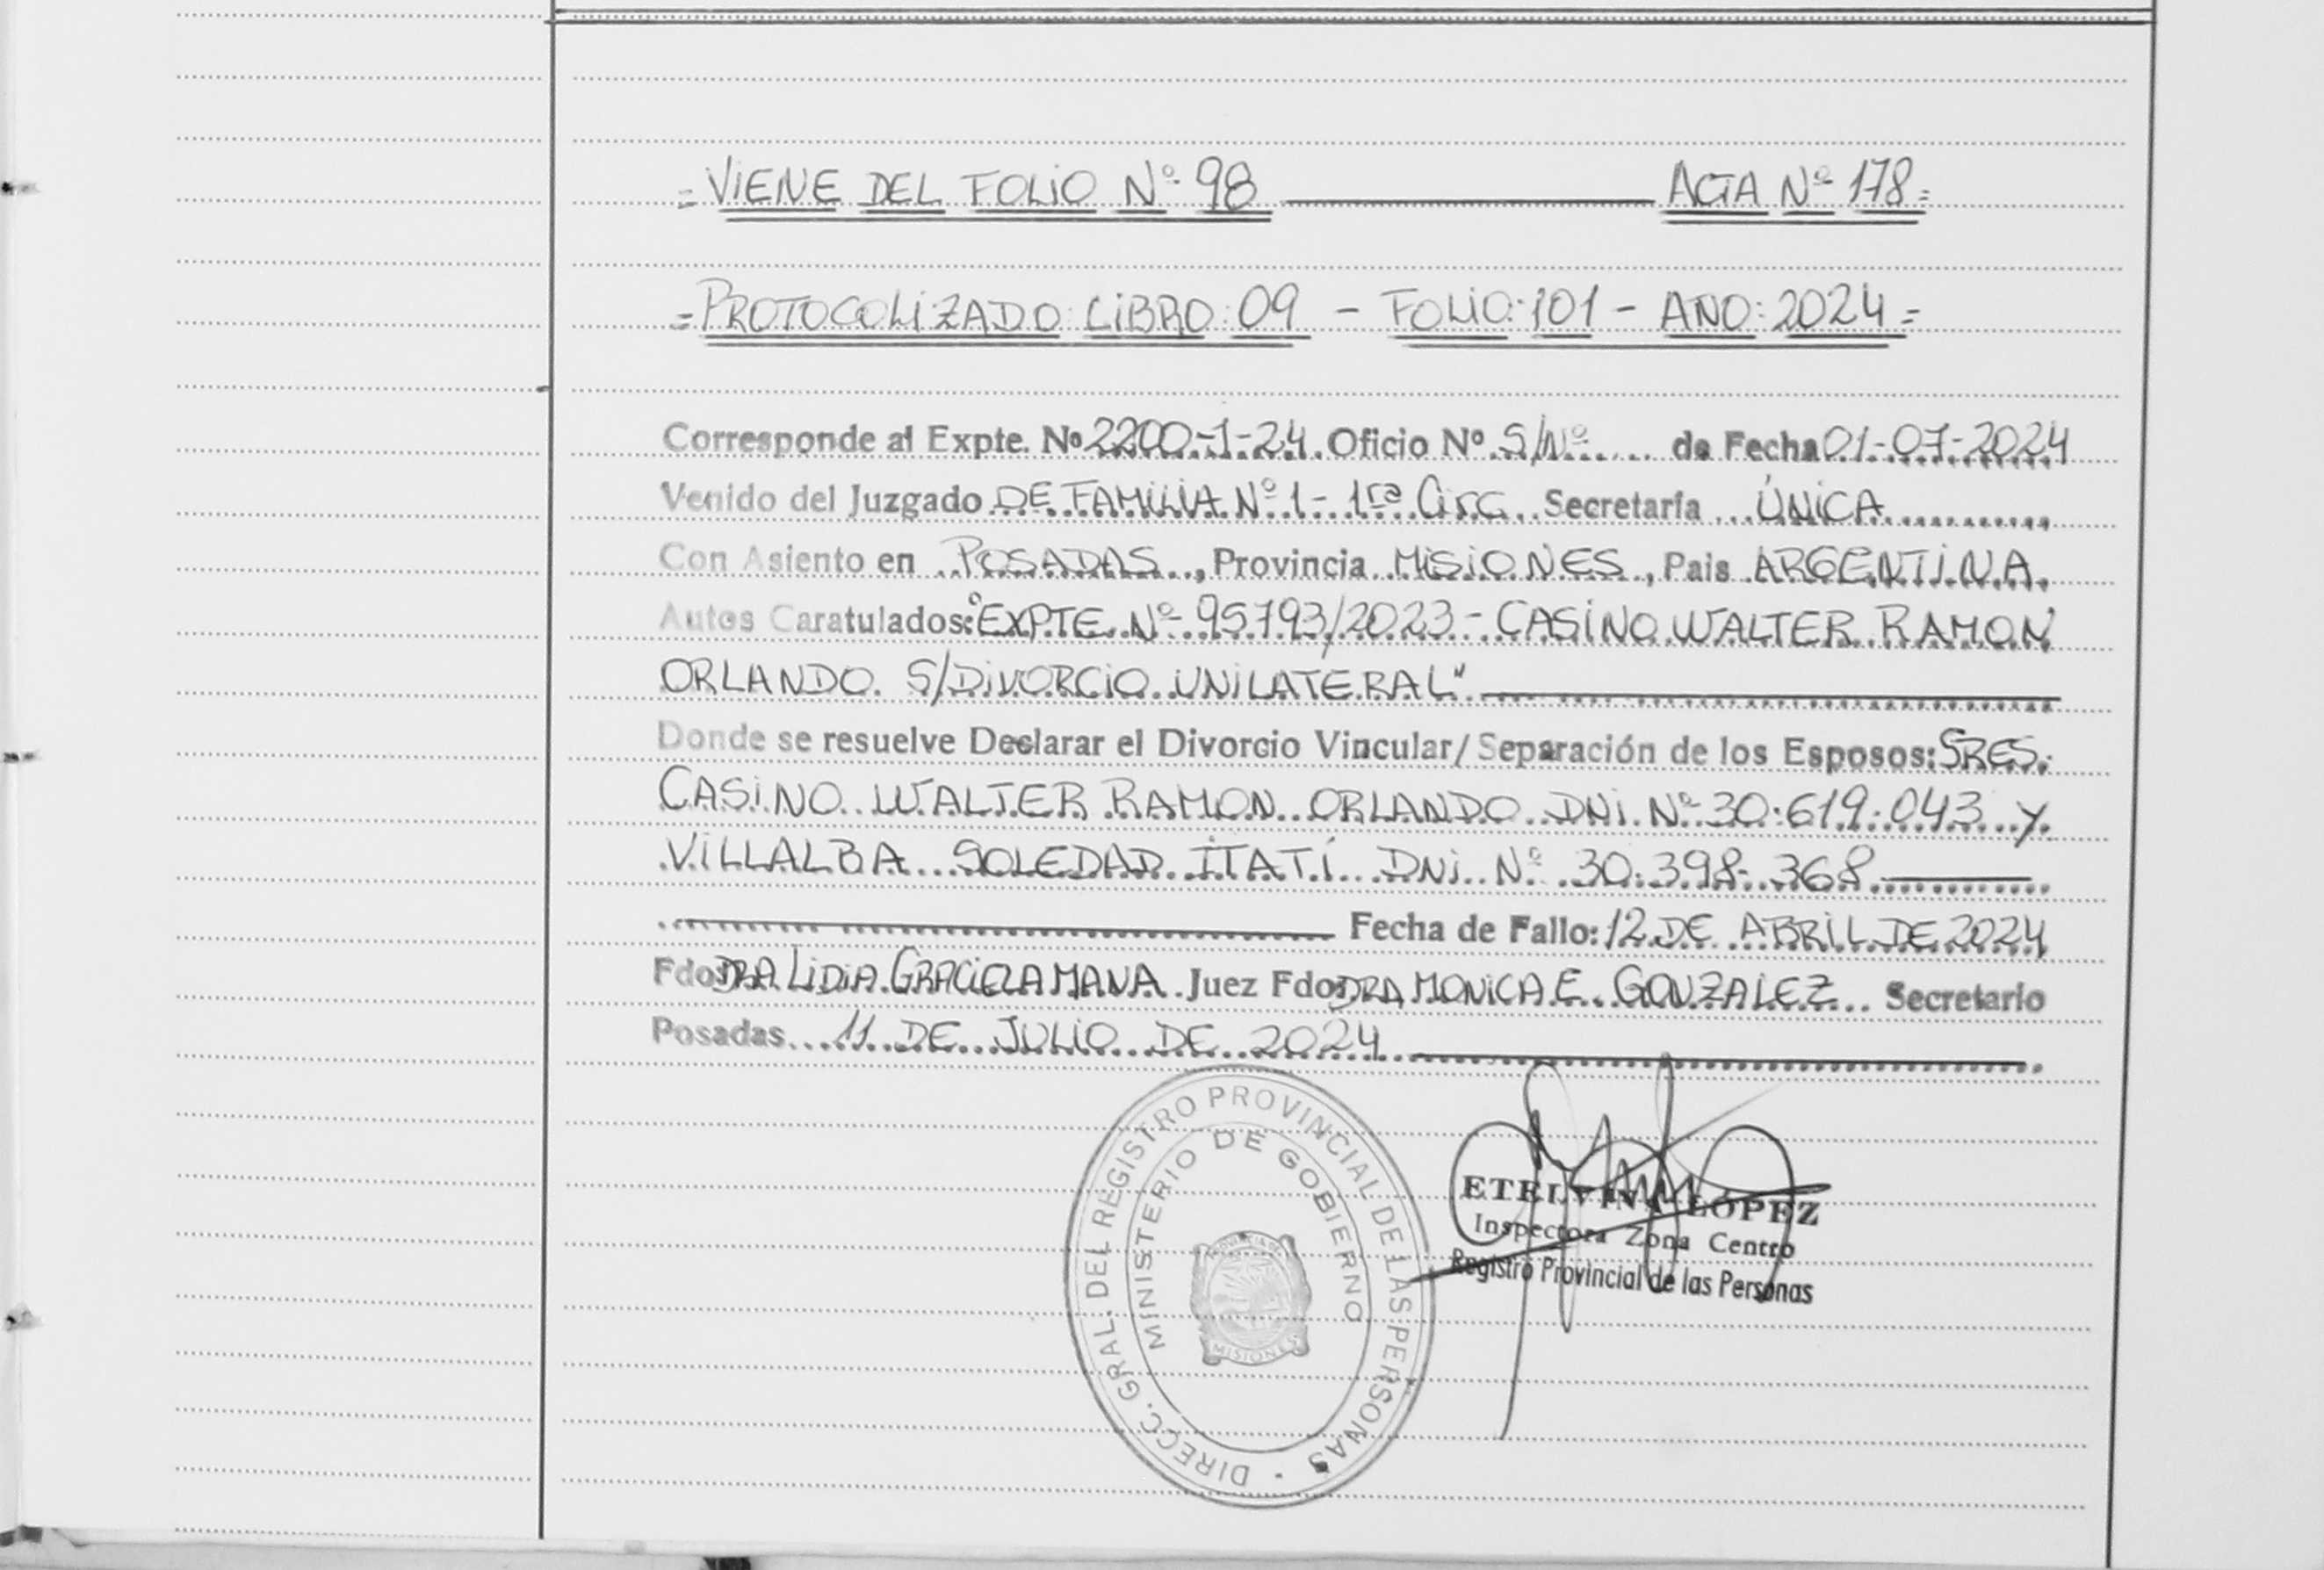 =VIENE DEL FOLIO Nº 98 ACTA Nº 178=
=PROTOCOLIZADO: LIBRO: 09 - FOLIO: 101 - AÑO: 2024=
Corresponde al Expte. Nº 2200-1-24. Oficio Nº S/Nº de Fecha 01-07-2024
Venido del Juzgado DE FAMILIA Nº 1 - 1ra Circ. Secretaría ÚNICA
Con Asiento en POSADAS, Provincia MISIONES, Pais ARGENTINA.
Autos Caratulados: "EXPTE Nº 95793/2023 - CASINO WALTER RAMON
ORLANDO S/DIVORCIO UNILATERAL"
Donde se resuelve Declarar el Divorcio Vincular/Separación de los Esposos: SRES.
CASINO WALTER RAMON ORLANDO DNI Nº 30.619.043 Y
VILLALBA SOLEDAD ITATÍ DNI Nº 30.398.368
Fecha de Fallo: 12 DE ABRIL DE 2024
Fdo: DRA LIDIA GRACIELA MANA Juez Fdo: DRA MONICA E. GONZALEZ Secretario
Posadas 11 DE JULIO DE 2024
DIRECC. GRAL. DEL REGISTRO PROVINCIAL DE LAS PERSONAS
MINISTERIO DE GOBIERNO
MISIONES
ETELVINA LOPEZ
Inspectora Zona Centro
Registro Provincial de las Personas